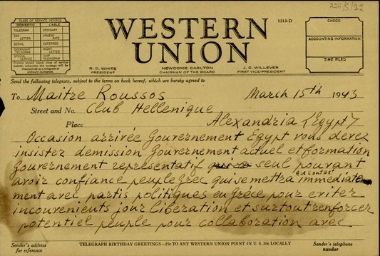 1210-D
WESTERN
UNION
CHECK
ACCOUNTING INFORMATION
TIME FILED
R. B. WHITE
PRESIDENT
NEWCOMB CARLTON
CHAIRMAN OF THE BOARD
J. C. WILLEVER
FIRST VICE-PRESIDENT
Send the following telegram, subject to the terms on back hereof, which are hereby agreed to
To Maitre Roussos March 15th 1943
Street and No. Club Hellenique
Place Alexandria (Egypt)
Occasion arrivée Gouvernement Egypt vous devez
insistez demission Gouvernement actuel et formation
Gouvernement representatif seul pouvant
avoir confiance peuple grec qui se mettra immédiate
en contact
ment avec partis politiques en grèce pour eviter
inconvenients jour libération et surtout renforcer
potentiel peuple pour collaboration avec
Sender's address
for reference
TELEGRAPH BIRTHDAY GREETINGS—
TO ANY WESTERN UNION POINT IN U. S.
LOCALLY
Sender's telephone
number